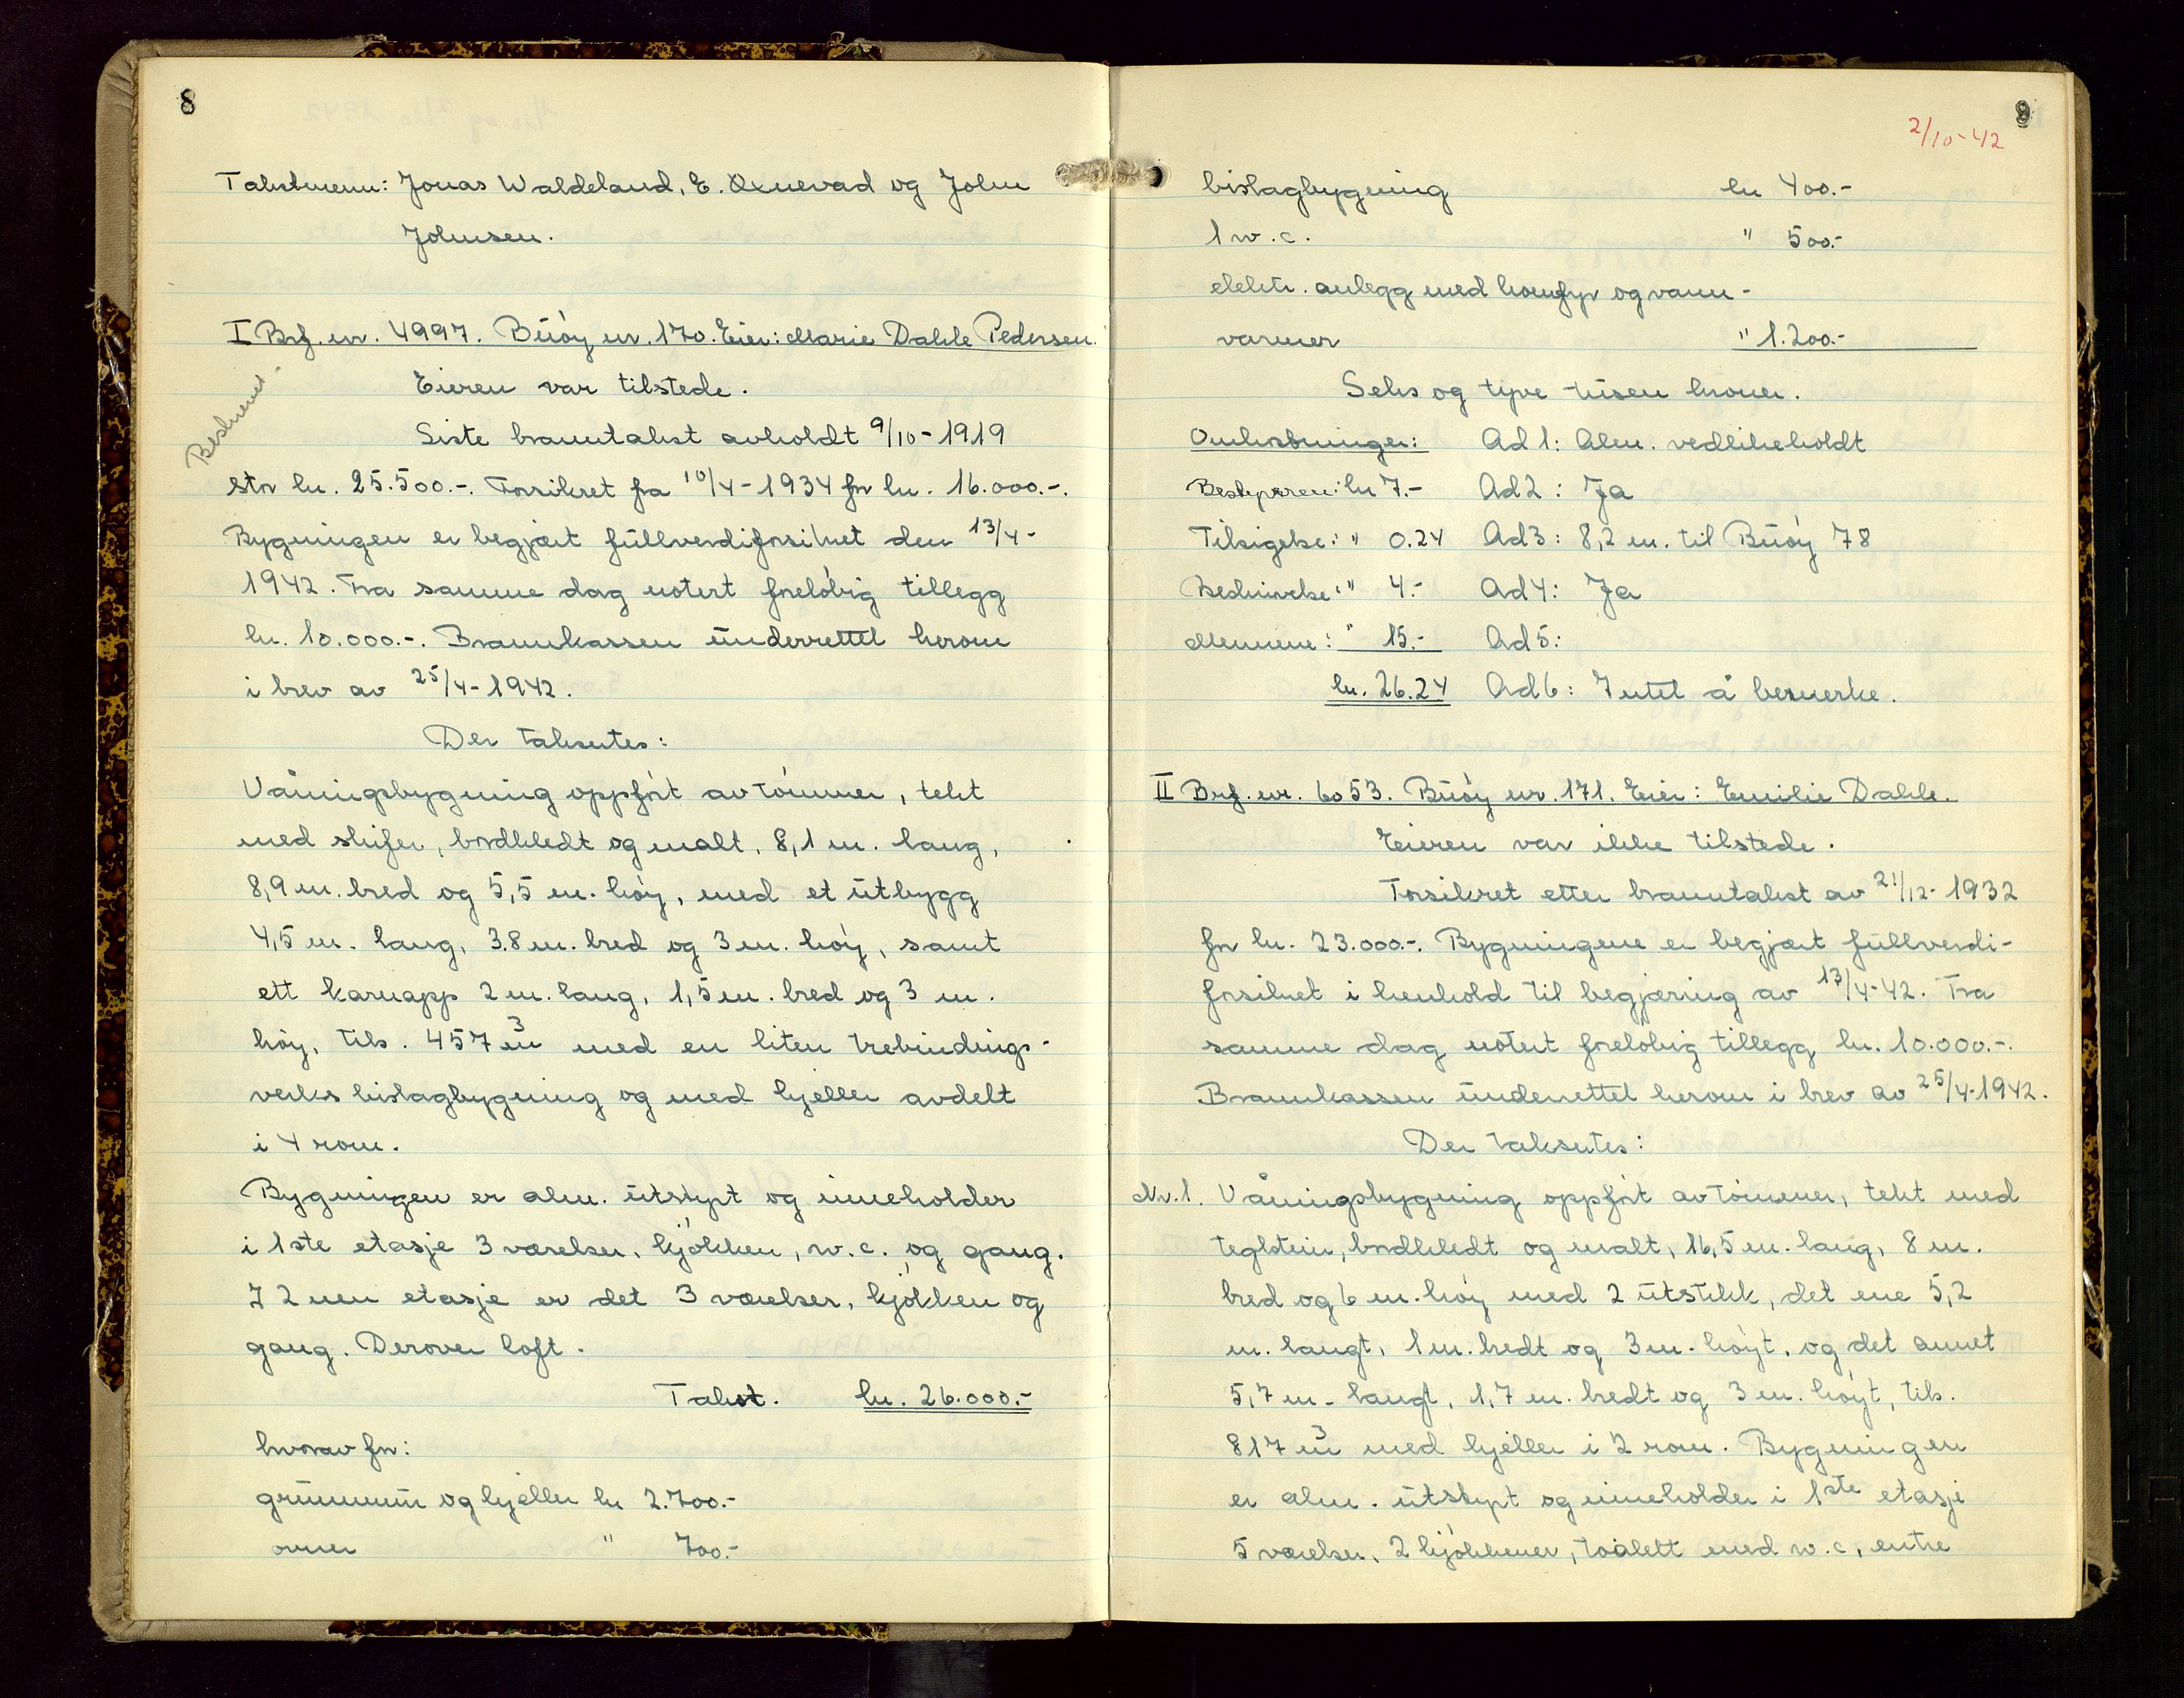 8
Takstmenn: Jonas Waldeland, E. Oxnevad og John
Johnsen.
I Brf. nr. 4997. Buøy nr. 170. Eier: Marie Dahle Pedersen.
Beskrevet
Eieren var tilstede.
Siste branntakst avholdt 9/10-1919
stor kr. 25.500.-. Forsikret fra 10/4-1934 for kr. 16.000.-.
Bygningen er begjært fullverdiforsikret den 13/4-
1942. Fra samme dag notert foreløbig tillegg
kr. 10.000.-. Brannkassen underrettet herom
i brev av 25/4-1942.
Der takseres:
Våningsbygning oppført av tømmer, tekt
med skifer, bordkledt og malt, 8,1 m. lang,
8,9 m. bred og 5,5 m. høy, med et utbygg
4,5 m. lang, 3.8 m. bred og 3 m. høy, samt
ett karnapp 2 m. lang, 1,5 m. bred og 3 m.
høy, tils. 457 m³ med en liten trebindings-
verks bislagbygning og med kjeller avdelt
i 4 rom.
Bygningen er alm. utstyrt og inneholder
i 1ste etasje 3 værelser, kjøkken, w.c. og gang.
I 2nen etasje er det 3 værelser, kjøkken og
gang. Derover loft.
Takst. kr. 26.000.-
hvorav for:
grunnmur og kjeller kr 2.700.-
ovner " 700.-
9
2/10-42
bislagbygning kr 400.-
1 w.c. " 500.-
elektr. anlegg med komfyr og vann-
varmer " 1.200.-
Seks og tyve tusen kroner.
Omkostninger: Ad 1: Alm. vedlikeholdt
Bestyreren: kr 7.- Ad 2: Ja
Tilsigelse: " 0.24 Ad 3: 8,2 m. til Buøy 78
Beskrivelse: " 4.- Ad 4: Ja
Mennene: " 15.- Ad 5:
kr. 26.24 Ad 6: Intet å bemerke.
II Brf. nr. 6053. Buøy nr. 171. Eier: Emilie Dahle.
Eieren var ikke tilstede.
Forsikret etter branntakst av 21/12-1932
for kr. 23.000.-. Bygningene er begjært fullverdi-
forsikret i henhold til begjæring av 13/4-42. Fra
samme dag notert foreløbig tillegg kr. 10.000.-.
Brannkassen underrettet herom i brev av 25/4-1942.
Der takseres:
Nr. 1. Våningsbygning oppført av tømmer, tekt med
teglstein, bordkledt og malt, 16,5 m. lang, 8 m.
bred og 6 m. høy med 2 utstikk, det ene 5,2
m. langt, 1 m. bredt og 3 m. høyt, og det annet
5,7 m. langt, 1,7 m. bredt og 3 m. høyt, tils.
817 m³ med kjeller i 2 rom. Bygningen
er alm. utstyrt og inneholder i 1ste etasje
5 værelser, 2 kjøkkener, toalett med w.c, entre